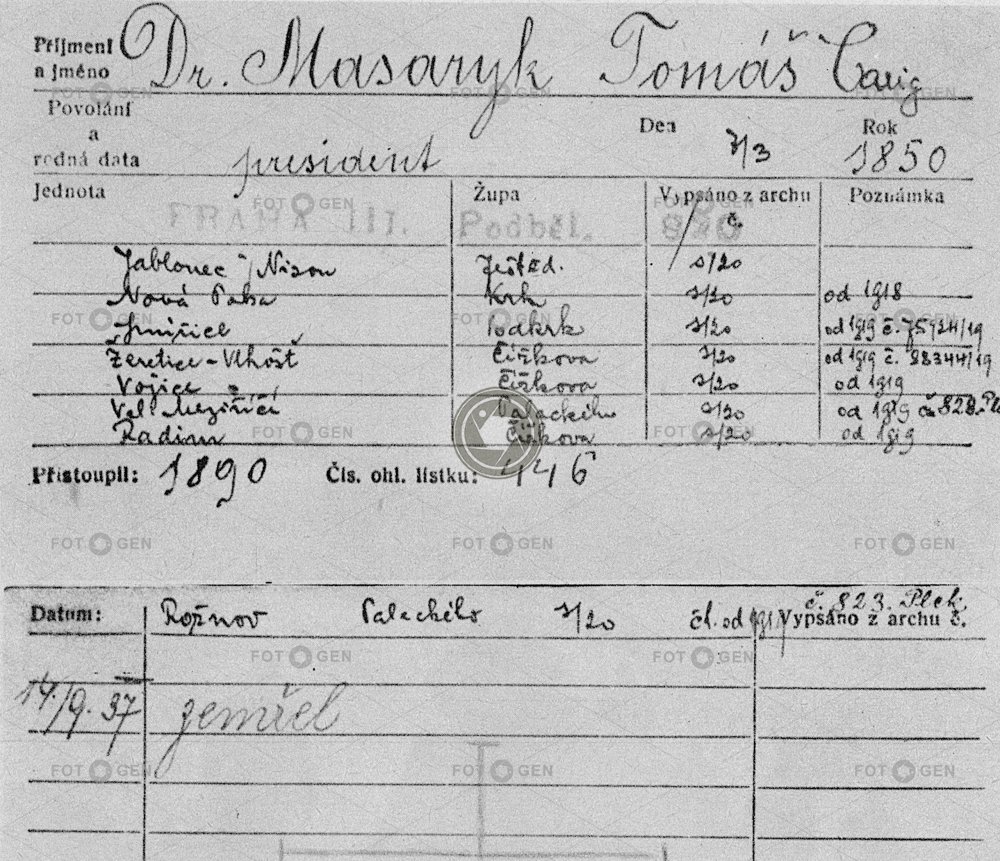 Příjmení
a jméno
Dr. Masaryk Tomáš Garrig
Povolání
a
rodná data
president
Den
7/3
Rok
1850
Jednota Župa Vypsáno z archu č. Poznámka
PRAHA III. Podběl. 820
Jablonec / Nisou Ještěd. 3/20
Nová Paka Krk 3/20 od 1918
Podkrk 3/20 od 1919
Žeretice - Vlhošť Čížkova 3/20 od 1919 č. 88344/19
Vojice Čížkova 3/20 od 1919
Vel. Meziříčí Palackého 3/20 od 1919 č. 823. Ple
Radim Čížkova 3/20 od 1919
Přistoupil: 1890 Čís. ohl. lístku: 446
č. 823. Plch.
Datum: Rožnov Palackého 3/20 čl. od 1919 Vypsáno z archu č.
14./9. 37 zemřel
FOTOGEN